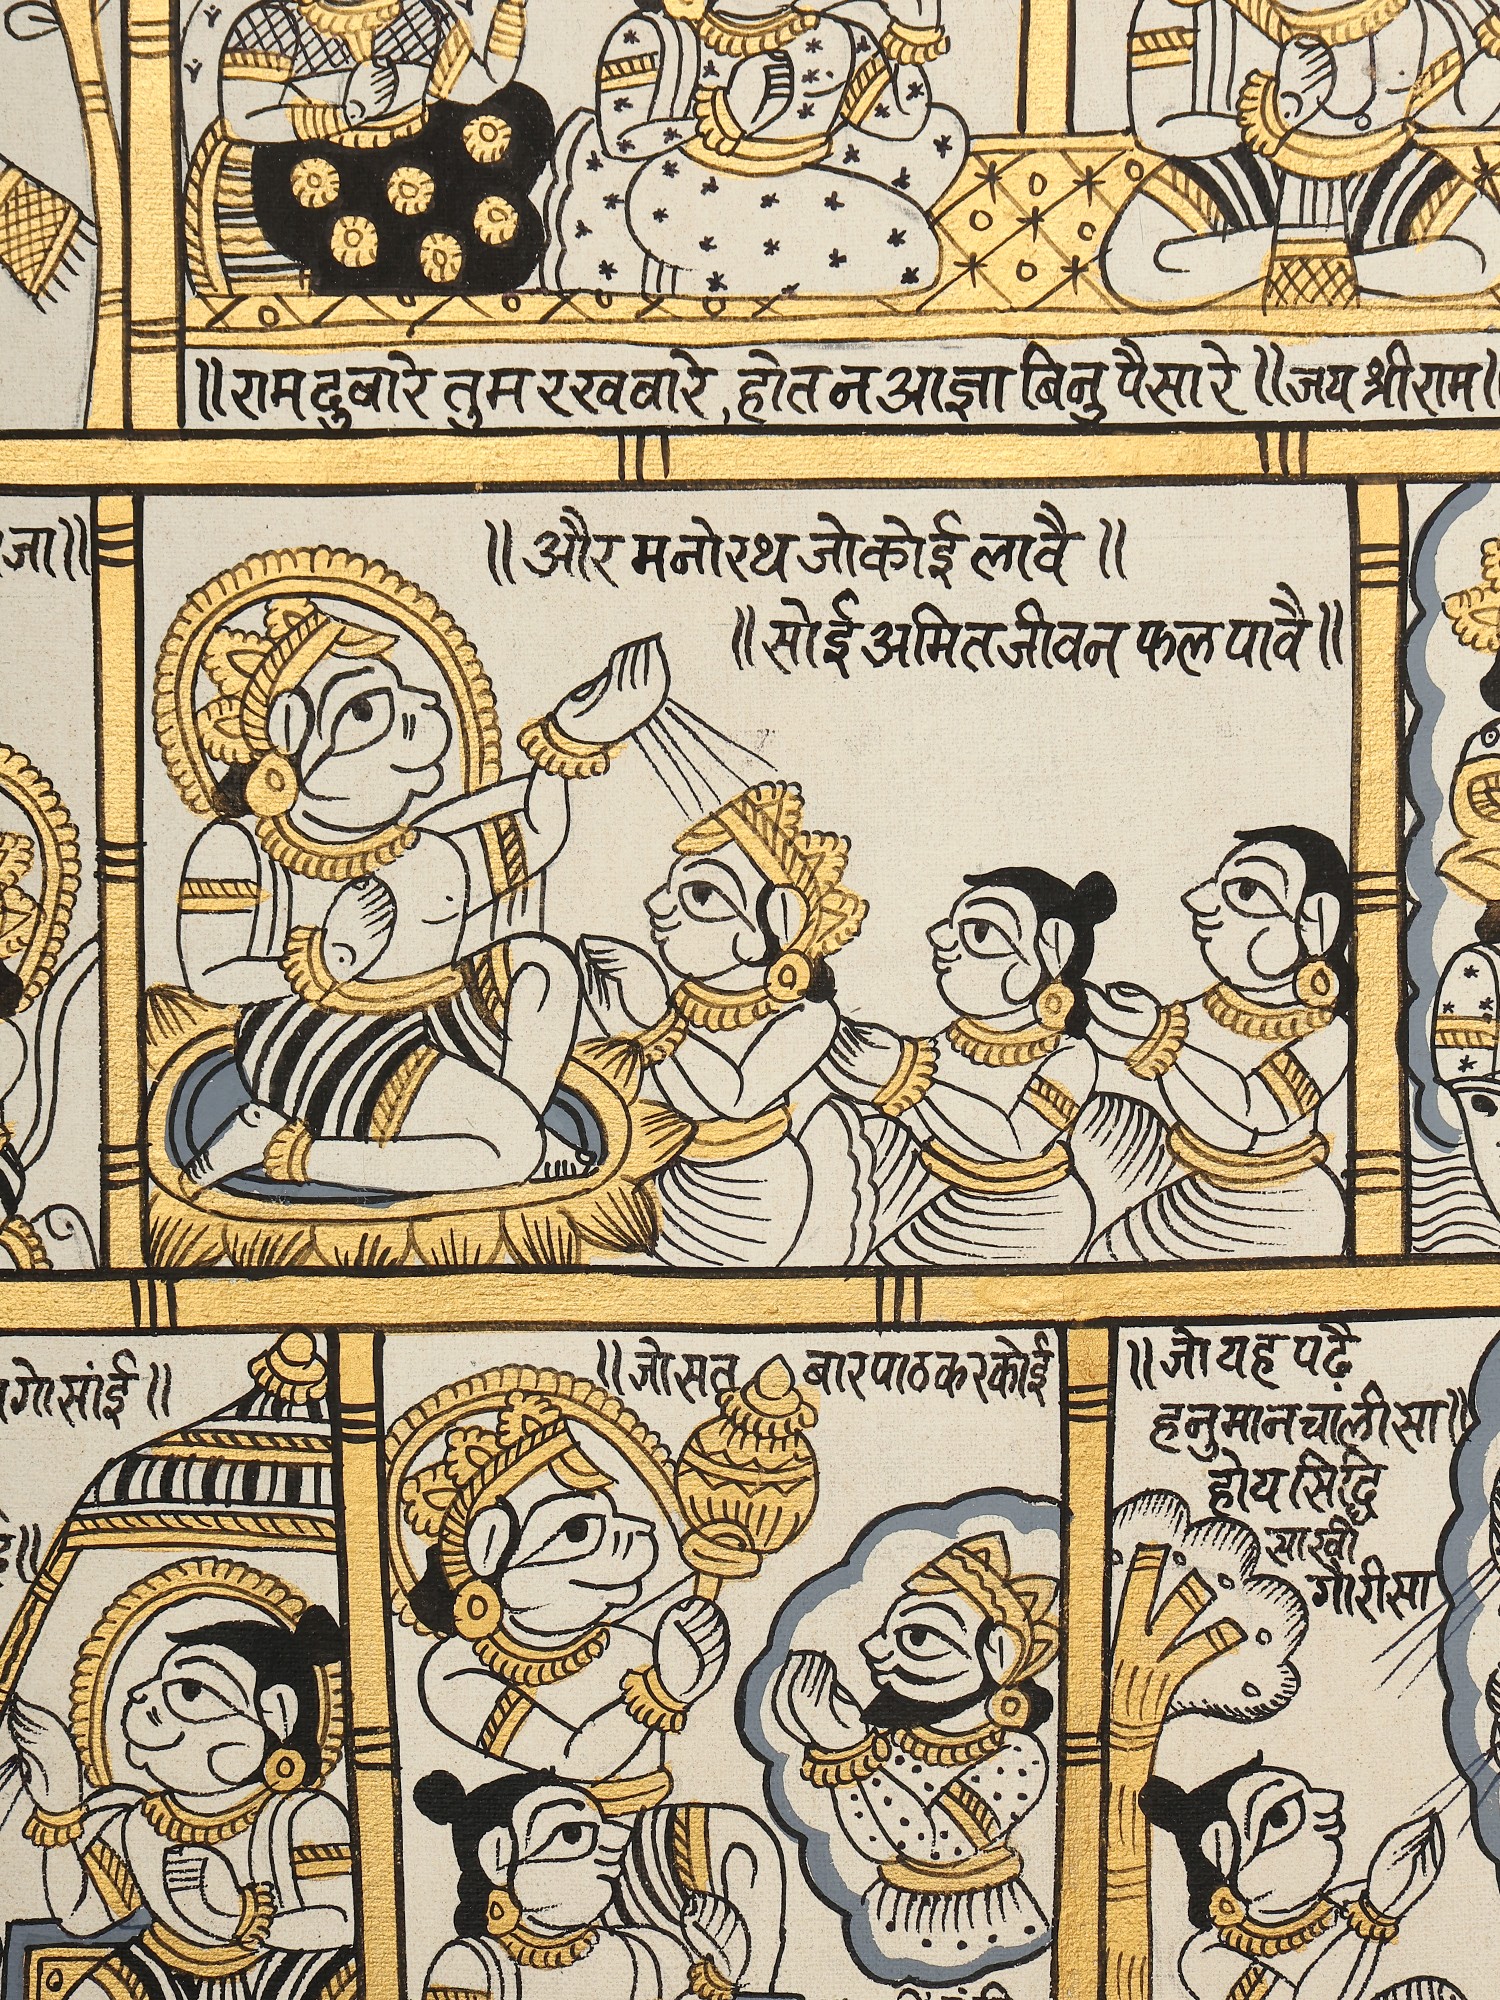 ॥ राम दुबारे तुम रखवारे, होत न आज्ञा बिनु पैसारे ॥ जय श्री राम ॥
जा ॥
॥ और मनोरथ जो कोई लावै ॥
॥ सोई अमित जीवन फल पावै ॥
गोसांई ॥
॥ जो सत बार पाठ कर कोई
॥ जो यह पढ़ै
हनुमान चालीसा ॥
होय सिद्धि
साखी
गौरीसा